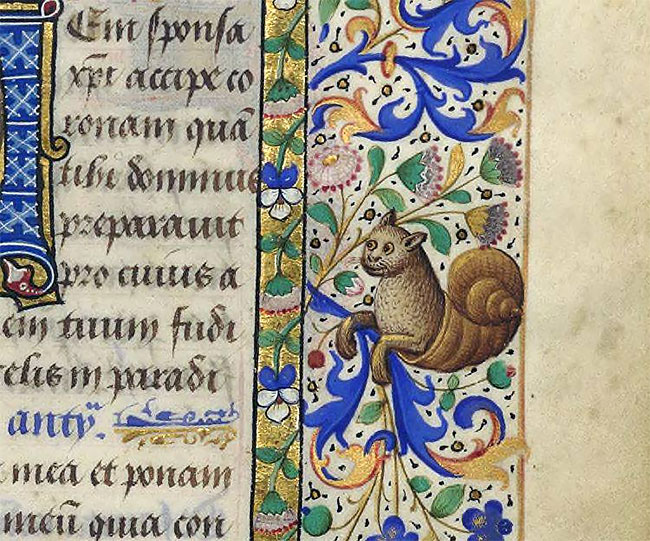 Eni sponsa
xpi accipe co
ronam quã
tibi dominus
preparauit
pro cuius a
em tuum fudi
elis in paradi
mea et ponam
meũ quia con